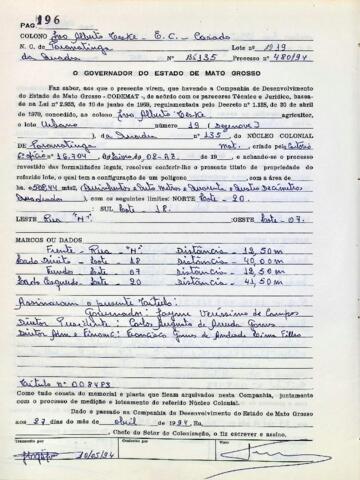 PAG 196
COLONO José Alberto - E.C. - Casado
N. C. de Paranatinga Lote nº 1919
da Quadra Nº 135 Processo nº 480/94
O GOVERNADOR DO ESTADO DE MATO GROSSO
Faz saber, aos que o presente virem, que havendo a Companhia de Desenvolvimento
do Estado de Mato Grosso - CODEMAT -, de acôrdo com os pareceres Técnico e Jurídico, basea-
do na Lei nº 2.935, de 10 de junho de 1969, regulamentada pelo Decreto nº 1.138, de 20 de abril
de 1970, concedido ao colono José Alberto agricultor,
o lote Urbano número 19 (Dezenove)
). da Quadra nº 135 do NÚCLEO COLONIAL
de Paranatinga Mat. criado pelo
nº 16.704 02-A3 de 19 , e achando-se o processo
revestido das formalidades legais, resolveu conferir-lhe o presente título de propriedade do
referido lote, o qual tem a configuração de um polígono com a área de
ha 508,44 mts2 (Quinhentos e Oito Metros e Quarenta e Quatro Decímetros
Quadrados), com os seguintes limites: NORTE Lote - 20.
: SUL Lote - 18.
LESTE Rua "H". :OESTE Lote - 07.
MARCOS OU DADOS
Frente - Rua - "H" Distância - 12,50 m
Lado Direito - Lote - 18 Distância - 40,00 m
Fundo - Lote - 07 Distância - 12,50 m
Lado Esquerdo - Lote - 20 Distância - 41,50 m
Assinaram o presente Título:
Governador: Jayme Veríssimo de Campos
Diretor Presidente: Carlos Augusto de Arruda Gomes
Diretor Adm e Financ: Francisco Gomes de Andrade Lima Filho
Título nº 008483
Como tudo consta do memorial e planta que ficam arquivados nesta Companhia, juntamente
com o processo de medição e loteamento do referido Núcleo Colonial.
Dado e passado na Companhia de Desenvolvimento do Estado de Mato Grosso
aos 27 dias do mês de abril de 1994, Eu,
, Chefe do Setor de Colonização, o fiz escrever e assino.
Transcrito por Conferido por Visto
30/05/94